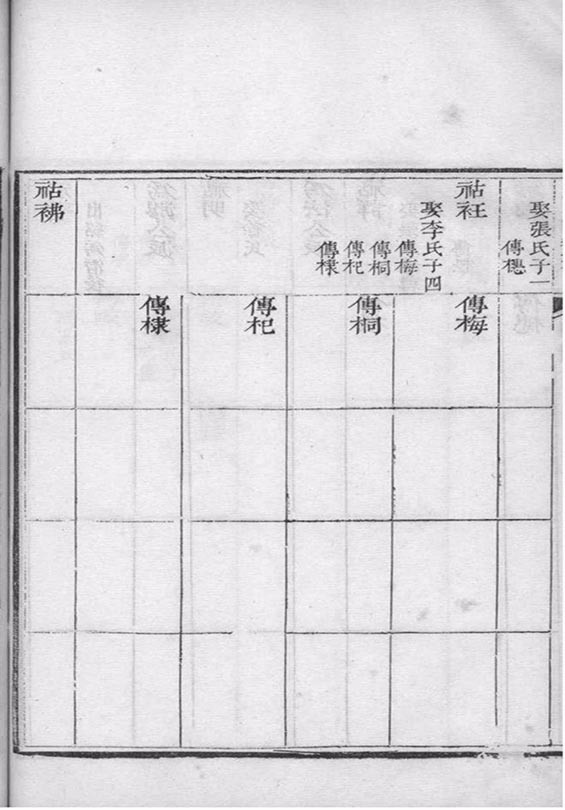 娶張氏子一
傳樬
祜衽
娶李氏子四
傳梅
傳桐
傳杞
傳棣
祜彿
傳梅
傳桐
傳杞
傳棣